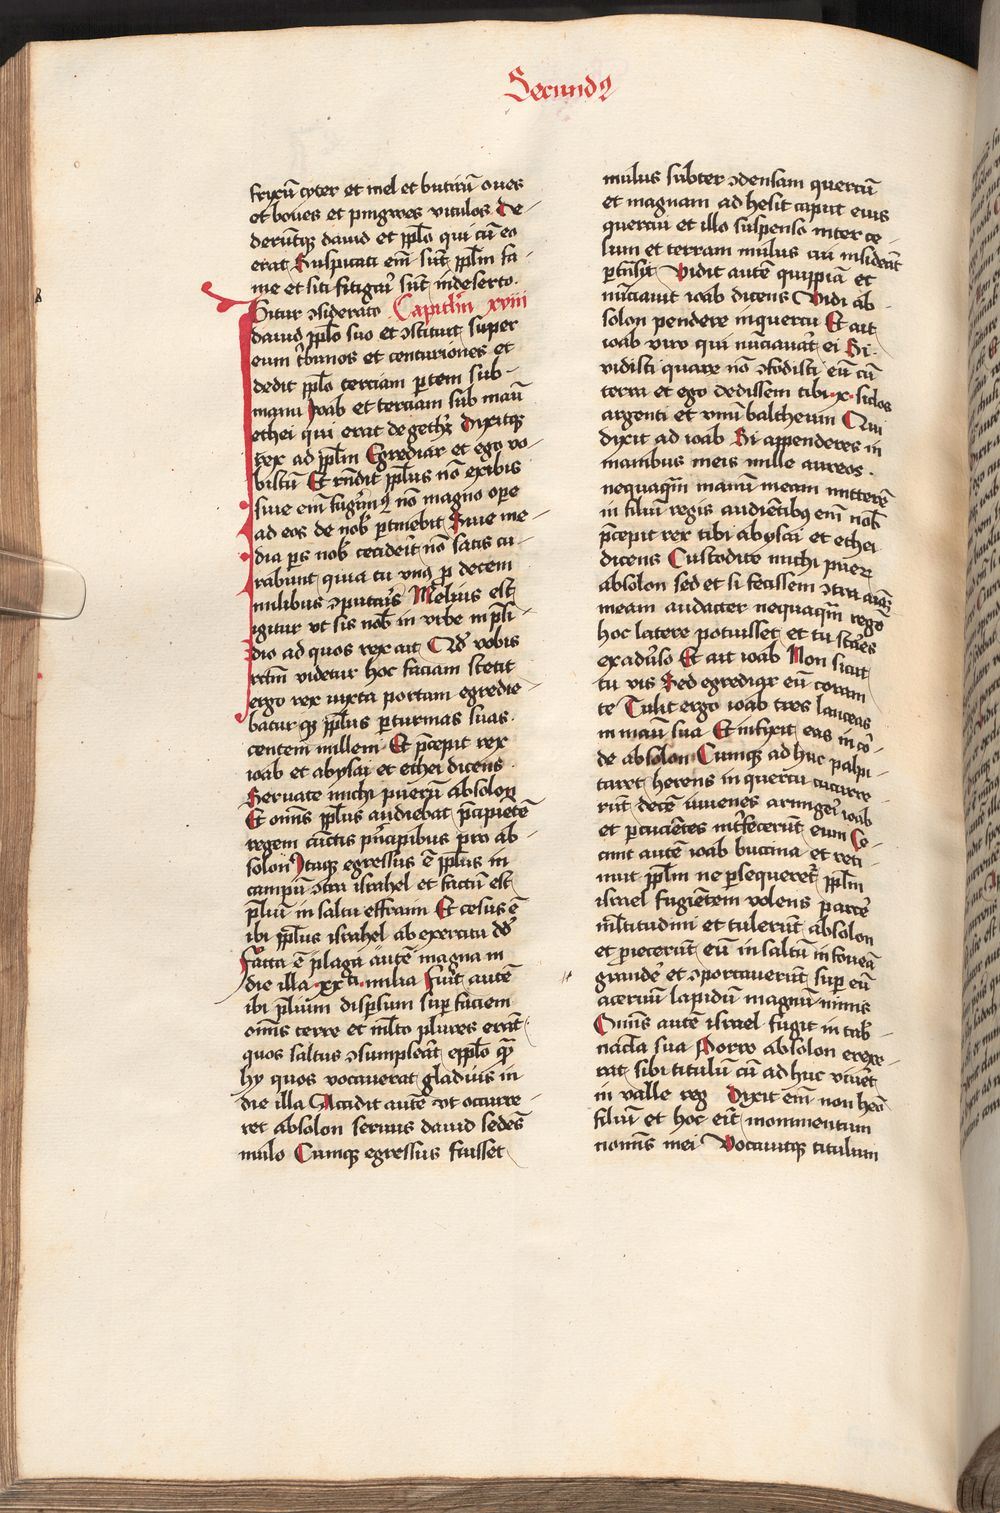 Secundꝰ
frixũ cyter et mel et butirũ oues
et boues et pingwes vitulos De
derũtqꝫ dauid et pplo qui cũ eo
erat Suspicati em̃ sũt pplm fa
me et siti fatigari sũt in deserto
Igitur ꝯsiderato Capitlm xviii
dauid pplo suo et ꝯstituit super
eum tribunos et centuriones et
dedit pplo terciam ꝑtem sub
manu Joab et terciam sub manũ
ethei qui erat de geth Dixitqꝫ
rex ad pplm Egrediar et ego vo
biscũ Et rñdit pplus nõ exibis
siue em̃ fugimꝰ nõ magno oꝑe
ad eos de nob ꝑtinebit Siue me
dia ꝑs nob ceciderit nõ satis cu
rabunt quia tu vnꝰ ꝓ decem
milibus ꝯputaris Melius est
igitur vt sis nob in vrbe in p̃si
dio ad quos rex ait Qd vobis
rctm videtur hoc faciam Stetit
ergo rex iuxta portam egredie
batur qꝫ pplus ꝑ turmas suas
centeni milleni Et p̃cepit rex
ioab et abysai et ethei dicens
Seruate michi puerũ absolon
Et oms pplus audiebat p̃cipiẽtẽ
regem cũctis pñcipibus pro ab
solon Itaqꝫ egressus ẽ pplus in
campũ ꝯtra israhel et factũ est
p̃liũ in saltu effraim Et cesus ẽ
ibi pplus israhel ab exercitu dd
Facta ẽ plaga autẽ magna in
die illa ·xxti· milia Fuit autẽ
ibi p̃lium dispsum suꝑ faciem
oms terre et mlto plures erãt
quos saltus ꝯsumpserãt e pplo q̃
hy quos vocauerat gladius in
die illa Accidit autẽ vt occurre
ret absolon seruis dauid sedẽs
mulo Cumqꝫ egressus fuisset
mulus subter ꝯdensam quercũ
et magnam adhesit caput eius
quercui et illo suspenso inter ce
lum et terram mulus cui insiderãt
ꝑtrãsijt Vidit autẽ quippiã et
nũciauit ioab dicens Vidi ab
solon pendere in quercu Et ait
ioab viro qui nũciauat ei Si
vidisti quare nõ ꝯfodisti eũ cũ
terra et ego dedissem tibi ·x· siclos
argenti et vnũ baltheum Qui
dixit ad ioab Si appenderes in
manibus meis mille aureos
nequaqm manũ meam mitterẽ
in filiũ regis audiẽtibꝰ em̃ nob
p̃cepit rex tibi abysai et ethei
dicens Custodite michi pueꝝ
absolon sed et si fecissem ꝯtra aĩaꝫ
meam audacter nequaqm regẽ
hoc latere potuisset et tu stares
ex aduso Et ait ioab Non sicut
tu vis Sed egrediar eũ coram
te Tulit ergo ioab tres lanceas
in manũ sua Et infixit eas in cor
de absolon Cumqꝫ ad huc palpi
taret herens in quercu cucurre
rũt decẽ iuuenes armigeri ioab
et ꝑcuciẽtes intfecerũt eum Ce
cinit autẽ ioab buccina et reti
nuit pplm ne ꝑsequeret pplm
israel fugiẽtem volens ꝑcere
mltitudini et tulerũt absolon
et ꝓiecerũt eũ in saltũ in foueã
grandẽ et ꝯportauerũt suꝑ eũ
aceruũ lapidũ magnũ nimis
Omĩs autẽ israel fugit in tab
nacla sua Porro absolon erexe
rat sibi titulũ cũ ad huc viuẽt
in valle reg Dixit em̃ non heo
filiũ et hoc eit monimentum
nomĩs mei Vocauitqꝫ titulum